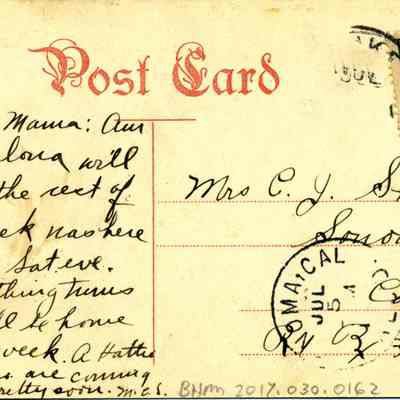 Post Card
Mama: Am
lona will
the rest of
ek nashere
Sat eve.
thing turns
ll be home
week. A Hattie
are coming
retty soon. M.C.S.
Mrs C. J. S
Sono
C
NOMA, CAL
JUL
5
R
JUL
BNM 2017.030.0162